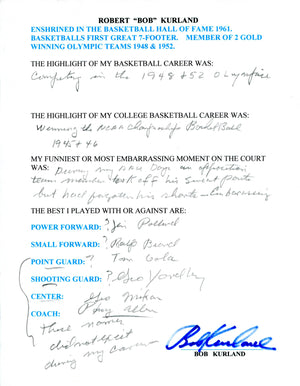 ROBERT "BOB" KURLAND
ENSHRINED IN THE BASKETBALL HALL OF FAME 1961.
BASKETBALLS FIRST GREAT 7-FOOTER. MEMBER OF 2 GOLD
WINNING OLYMPIC TEAMS 1948 & 1952.
THE HIGHLIGHT OF MY BASKETBALL CAREER WAS:
Competing in the 1948 & 52 Olympics
THE HIGHLIGHT OF MY COLLEGE BASKETBALL CAREER WAS:
Winning the NCAA Championships Basketball
1945 + 46
MY FUNNIEST OR MOST EMBARRASSING MOMENT ON THE COURT
WAS: During my AAU Days an opposition
team took off his Sweat Pants
but had forgotten his shorts - Embarrassing
THE BEST I PLAYED WITH OR AGAINST ARE:
POWER FORWARD: ? Jim Pollard
SMALL FORWARD: ?
POINT GUARD: ? Tom Gola
SHOOTING GUARD: ? Geo Yardley
CENTER: Geo Mikan
COACH: Phog Allen
These names
did not exist
during my career
Bob Kurland
BOB KURLAND